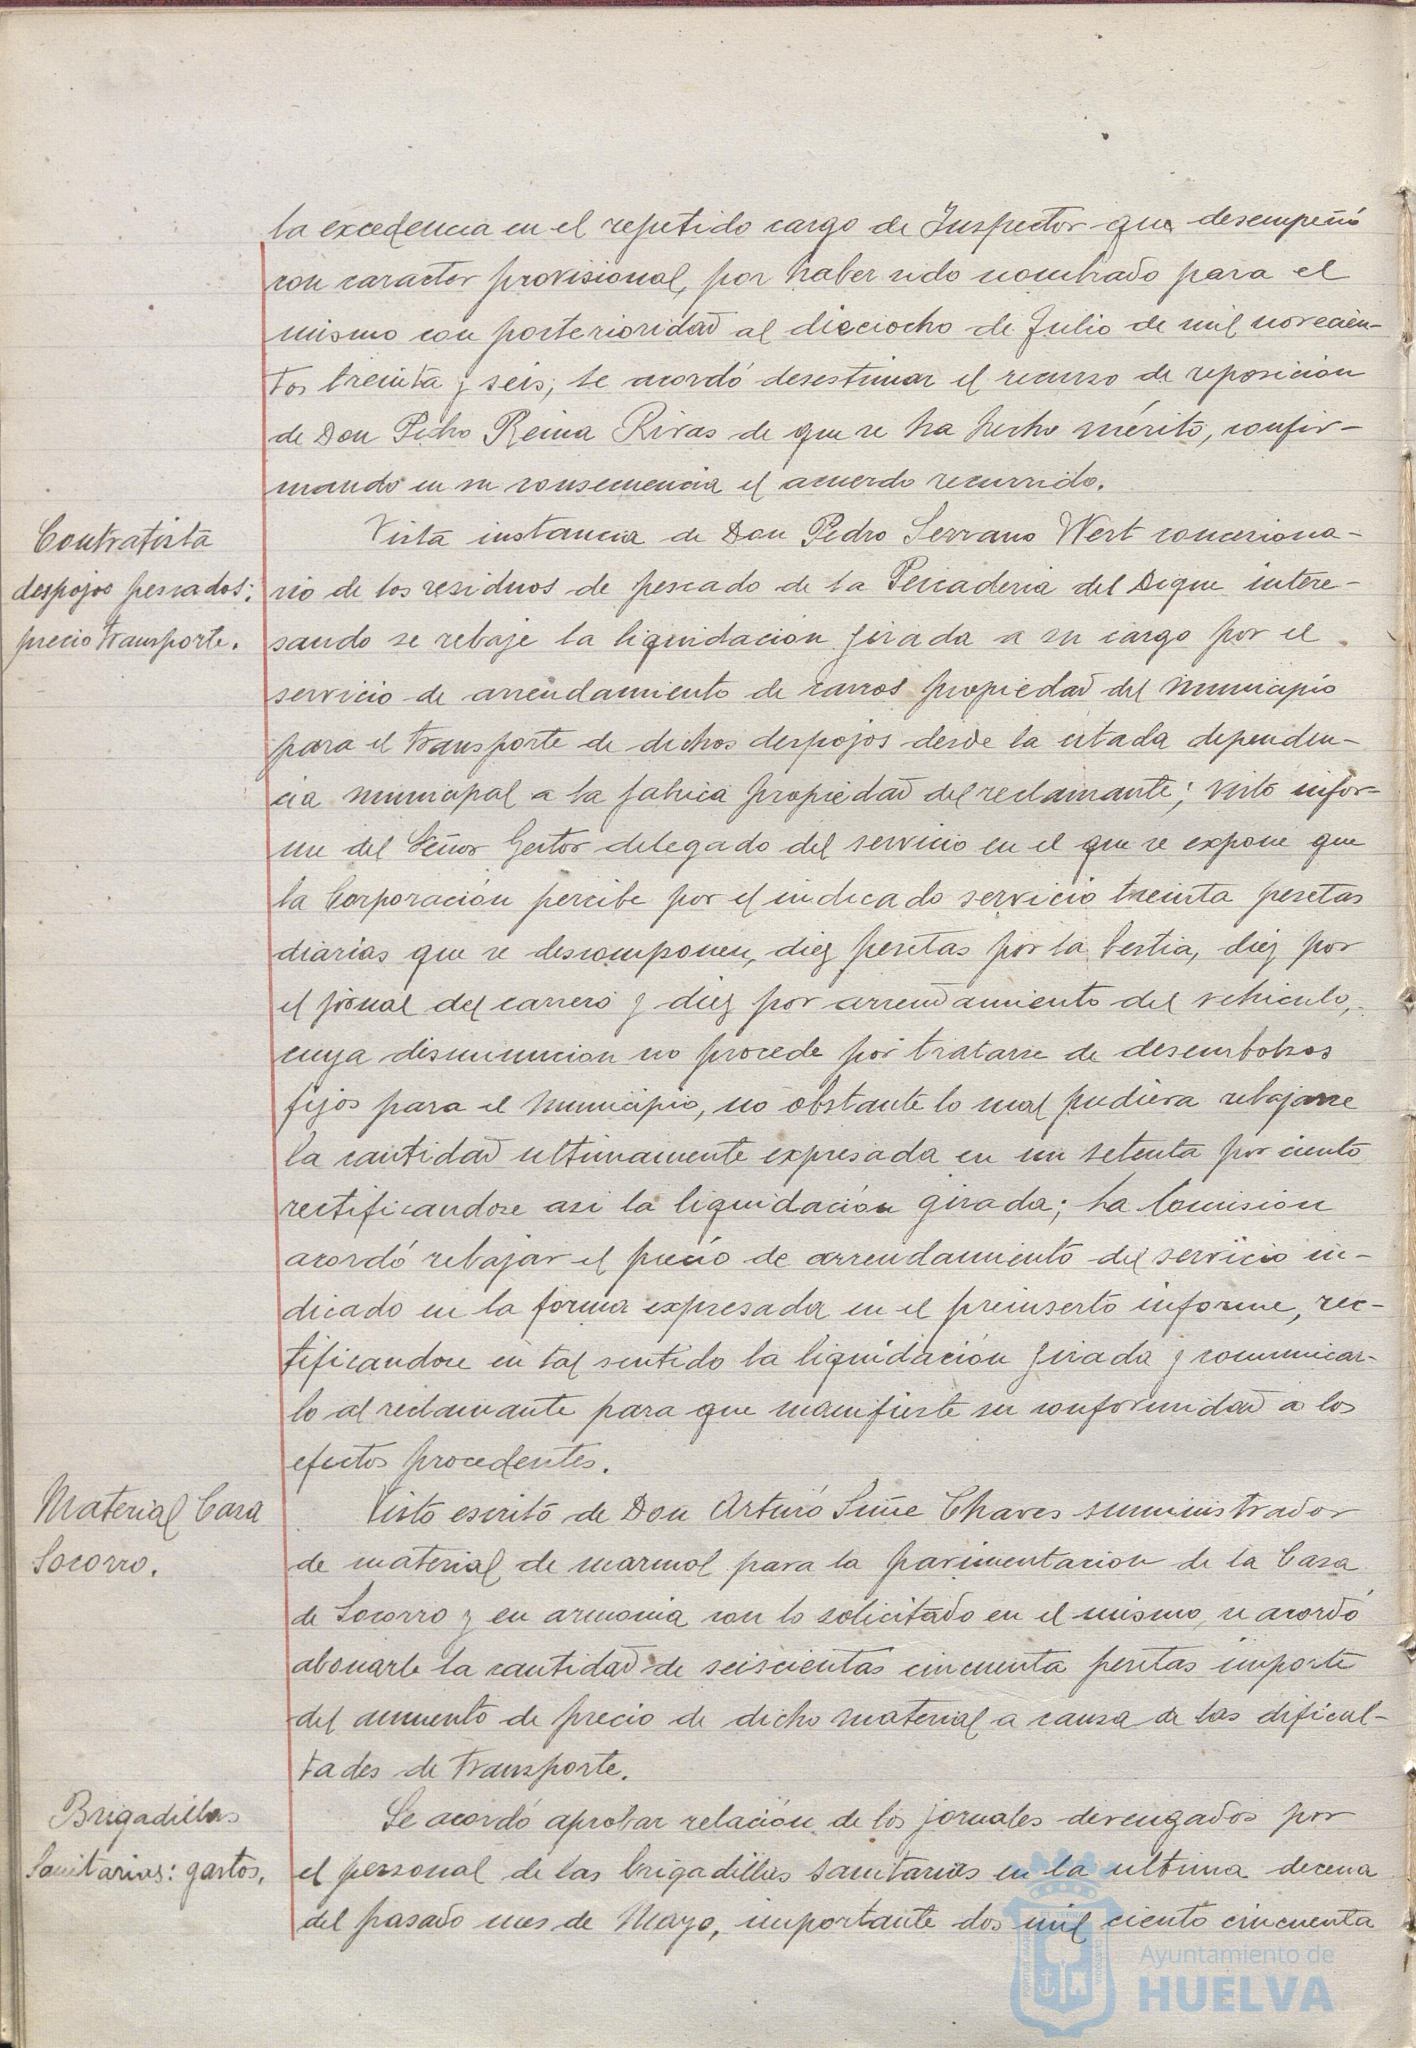 la excedencia en el repetido cargo de Inspector que desempeñó
con caracter provisional, por haber sido nombrado para el
mismo con posterioridad al dieciocho de Julio de mil novecien-
tos treinta y seis; se acordó desestimar el recurso de reposición
de Don Pedro Reina Rivas de que se ha hecho mérito, confir-
mando en su consecuencia el acuerdo recurrido.
Contratista
despojos pescados:
precio transporte.
Vista instancia de Don Pedro Serrano Wert concesiona-
rio de los residuos de pescado de la Pescaderia del Dique intere-
sando se rebaje la liquidación girada a su cargo por el
servicio de arrendamiento de carros propiedad del Municipio
para el transporte de dichos despojos desde la citada dependen-
cia municipal a la fabrica propiedad del reclamante; visto infor-
me del Señor Gestor delegado del servicio en el que se expone que
la Corporación percibe por el indicado servicio treinta pesetas
diarias que se descomponen, diez pesetas por la bestia, diez por
el jornal del carrero y diez por arrendamiento del vehiculo,
cuya disminucion no procede por tratarse de desembolsos
fijos para el Municipio, no obstante lo cual pudiera rebajarse
la cantidad ultimamente expresada en un setenta por ciento
rectificandose asi la liquidación girada; la Comision
acordó rebajar el precio de arrendamiento del servicio in-
dicado en la forma expresada en el preinserto informe, rec-
tificandose en tal sentido la liquidación girada y comunicar-
lo al reclamante para que manifieste su conformidad a los
efectos procedentes.
Material Casa
Socorro.
Visto escrito de Don Arturo Suñe Chaves suministrador
de material de marmol para la pavimentacion de la Casa
de Socorro y en armonia con lo solicitado en el mismo, se acordó
abonarle la cantidad de seiscientas cincuenta pesetas importe
del aumento de precio de dicho material a causa de las dificul-
tades de transporte.
Brigadillas
Sanitarias: gastos.
Se acordó aprobar relación de los jornales devengados por
el personal de las brigadillas sanitarias en la ultima decena
del pasado mes de Mayo, importante dos mil ciento cincuenta
Ayuntamiento de
HUELVA